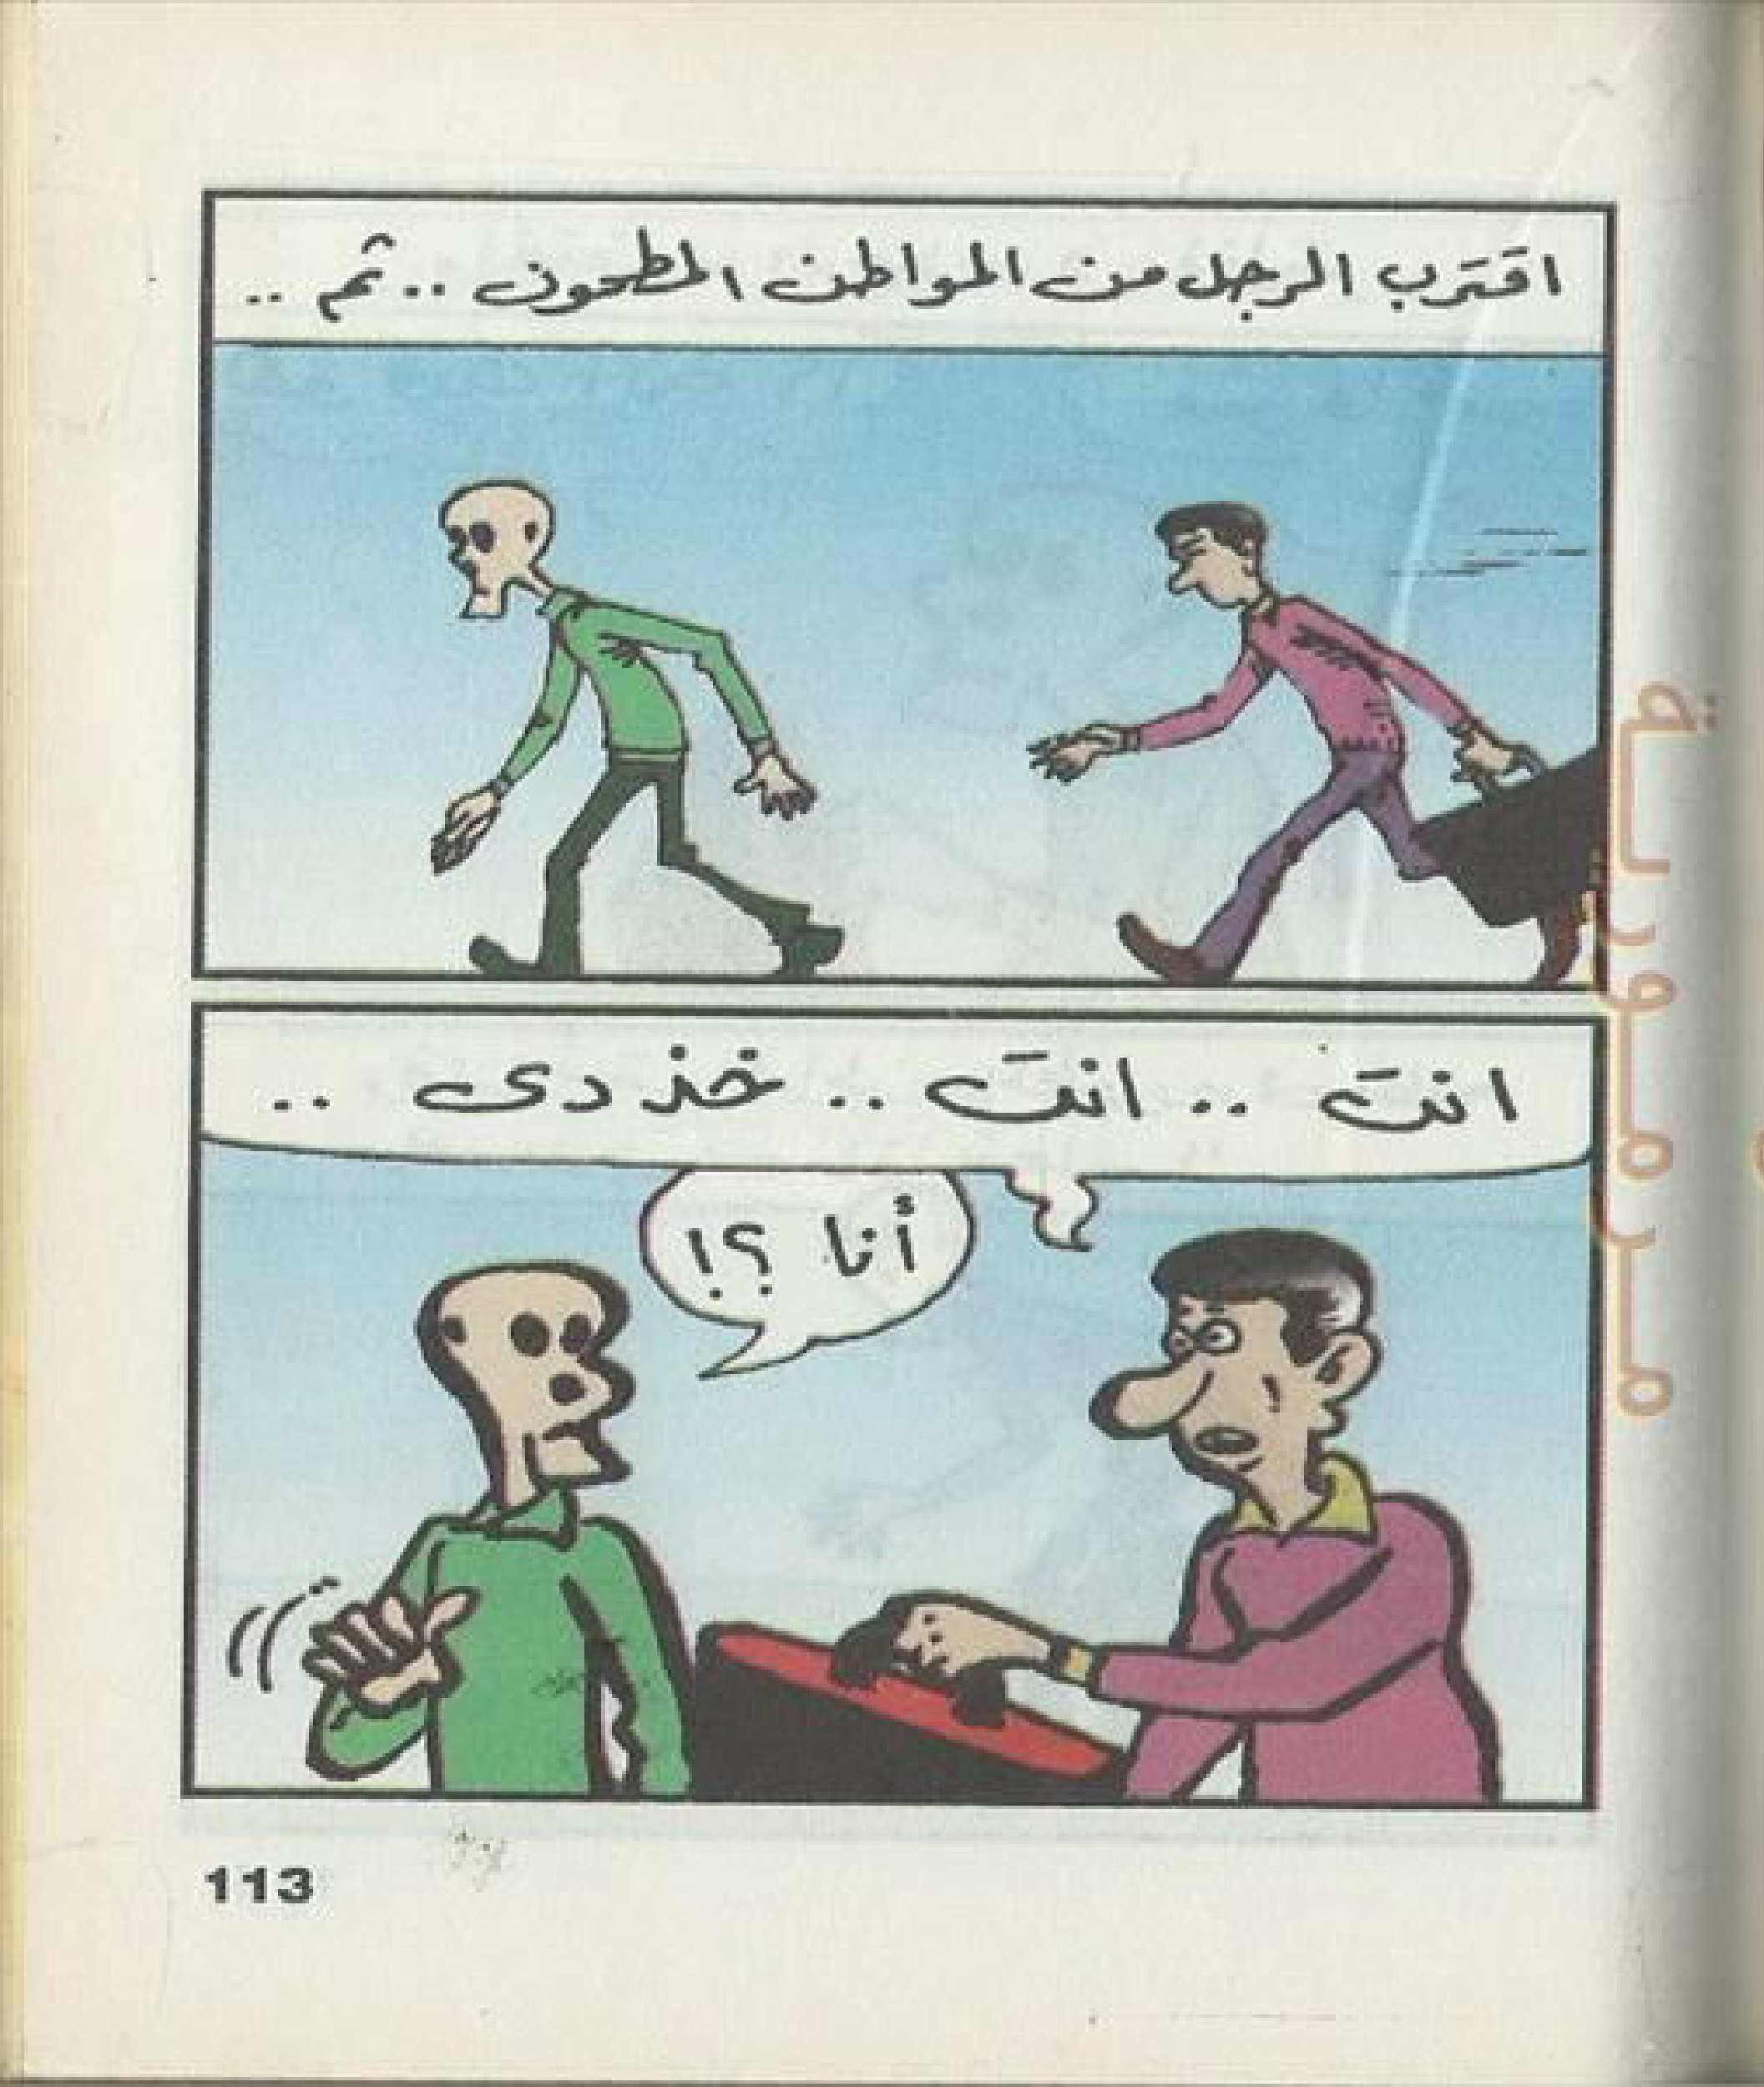 اقترب الرجل من المواطن المطحون .. ثم ..
انتَ .. انتَ .. خذ دى ..
أنا ؟!
113